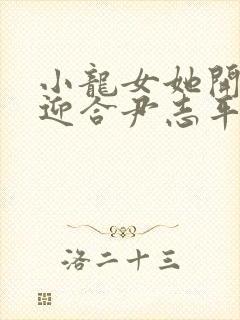 小龍女她開
迎合尹志平
洛二十三